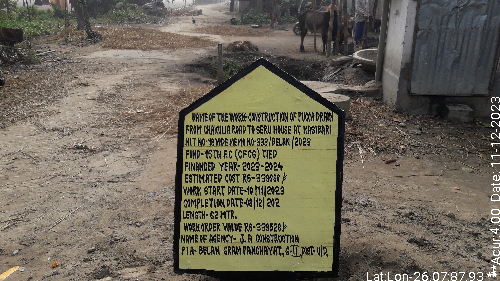 NAME OF THE WORK-CONSTRUCTION OF PUCCA DRAIN
FROM CHAKULIA ROAD TO SERU HOUSE AT KHUTBARI
NIT NO-18 VIDE MEMO NO-333/BELAN/2023
FUND-15TH F.C (CFCG) TIED
FINANCED YEAR-2023-2024
ESTIMATED COST RS-339988/-
WORK START DATE-10/11/2023
COMPLETION DATE-08/12/202
LENGTH-62 MTR.
WORK ORDER VALUE RS-339528/-
NAME OF AGENCY- J.A CONSTRUCTION
P I A- BELAN GRAM PANCHAYAT, G-II, DIST-U/D
Lat:Lon-26.07:87.93
**Acur:4.00 Date:11-12-2023